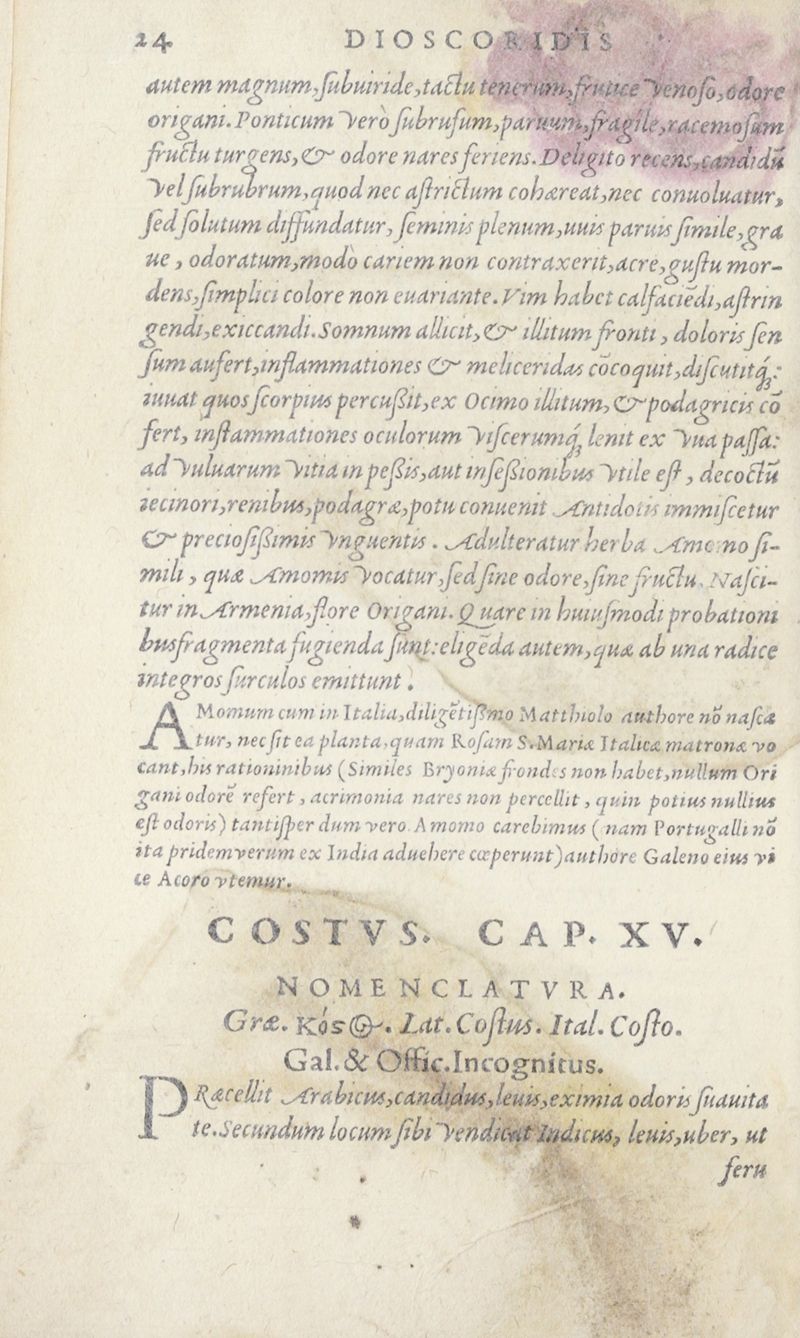 24 DIOSCORIDIS
autem magnum, ſubuiride, tactu tenerum, frutice venoſo, odore
origani. Ponticum verò ſubrufum, paruum, fragile, racemoſum
fructu turgens, & odore nares feriens. Deligito recens, candidũ
vel ſubrubrum, quod nec aſtrictum cohæreat, nec conuoluatur,
ſed ſolutum diffundatur, ſeminis plenum, uuis paruis ſimile, gra
ue, odoratum, modò cariem non contraxerit, acre, guſtu mor-
dens, ſimplici colore non euariante. Vim habet calfaciẽdi, aſtrin
gendi, exiccandi. Somnum allicit, & illitum fronti, doloris ſen
ſum aufert, inflammationes & meliceridas cõcoquit, diſcutitq́;:
iuuat quos ſcorpius percußit, ex Ocimo illitum, & podagricis cõ
fert, inflammationes oculorum viſcerumq́; lenit ex vua paſſa:
ad vuluarum vitia in peßis, aut inſeßionibus vtile eſt, decoctũ
iecinori, renibus, podagræ, potu conuenit Antidotis immiſcetur
& precioſißimis vnguentis. Adulteratur herba Amomo ſi-
mili, quæ Amomis vocatur, ſed ſine odore, ſine fructu. Naſci-
tur in Armenia, flore Origani. Quare in huiuſmodi probationi
bus fragmenta fugienda ſunt: eligẽda autem, quæ ab una radice
integros ſurculos emittunt.
AMomum cum in Italia, diligẽtißmo Matthiolo authore nõ naſca
tur, nec ſit ea planta, quam Roſam S. Mariæ Italicæ matronæ vo
cant, his rationinibus (Similes Bryoniæ frondes non habet, nullum Ori
gani odorẽ refert, acrimonia nares non percellit, quin potius nullius
eſt odoris) tantiſper dum vero Amomo carebimus (nam Portugalli nõ
ita pridem verum ex India aduehere cœperunt) authore Galeno eius vi
ce Acoro vtemur.
COSTVS. CAP. XV.
NOMENCLATVRA.
Græ. Κόςος. Lat. Coſtus. Ital. Coſto.
Gal. & Offic. Incognitus.
PRæcellit Arabicus, candidus, leuis, eximia odoris ſuauita
te. Secundum locum ſibi vendicat Indicus, leuis, uber, ut
feru